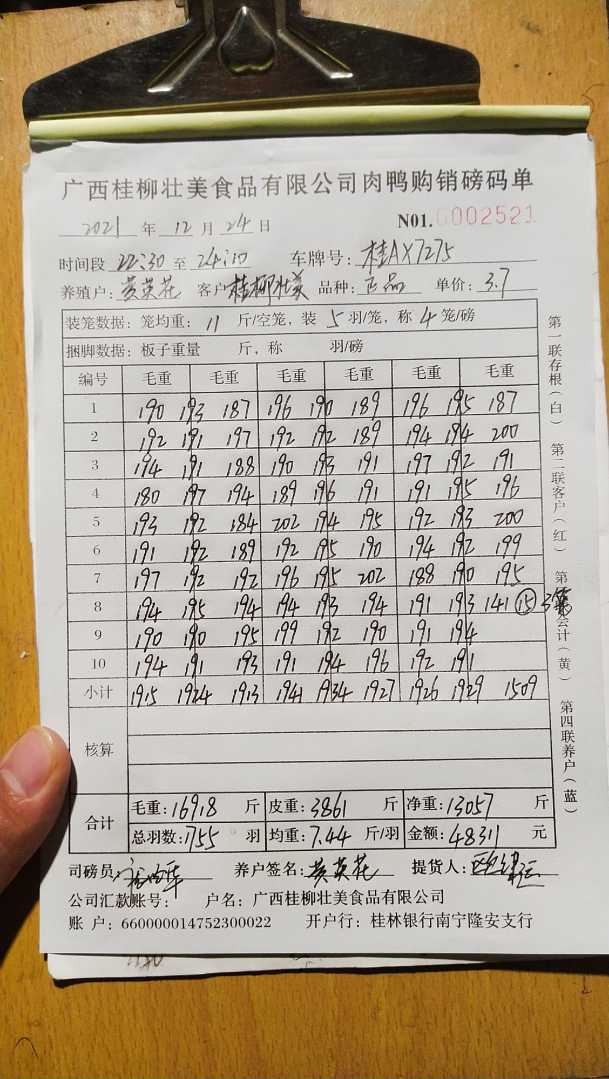 广西桂柳壮美食品有限公司肉鸭购销磅码单
2021 年 12 月 24 日 N01. 0002521
时间段 22:30 至 24:10 车牌号: 桂AX7275
养殖户: 黄英花 客户 桂柳壮美 品种: 正品 单价: 3.7
装笼数据: 笼均重: 11 斤/空笼, 装 5 羽/笼, 称 4 笼/磅
捆脚数据: 板子重量 斤, 称 羽/磅
编号 毛重 毛重 毛重 毛重 毛重 毛重
1 190 193 187 196 190 189 196 195 187
2 192 191 197 192 192 189 194 194 200
3 194 191 188 190 193 191 197 192 191
4 180 197 194 189 196 191 191 195 196
5 193 192 184 202 194 195 192 193 200
6 191 192 189 192 195 190 194 192 199
7 197 192 192 196 195 202 188 190 195
8 194 195 194 194 193 194 191 193 141 15 3笼
9 190 190 195 199 192 190 191 194
10 194 191 193 191 194 196 192 191
小计 1915 1924 1913 1941 1934 1927 1926 1929 1509
核算
合计 毛重: 16918 斤 皮重: 3861 斤 净重: 13057 斤
总羽数: 1755 羽 均重: 7.44 斤/羽 金额: 48311 元
司磅员 养户签名: 黄英花 提货人:
公司汇款账号: 户名: 广西桂柳壮美食品有限公司
账 户: 660000014752300022 开户行: 桂林银行南宁隆安支行
第一联存根(白) 第二联客户(红) 第 会计(黄) 第四联养户(蓝)